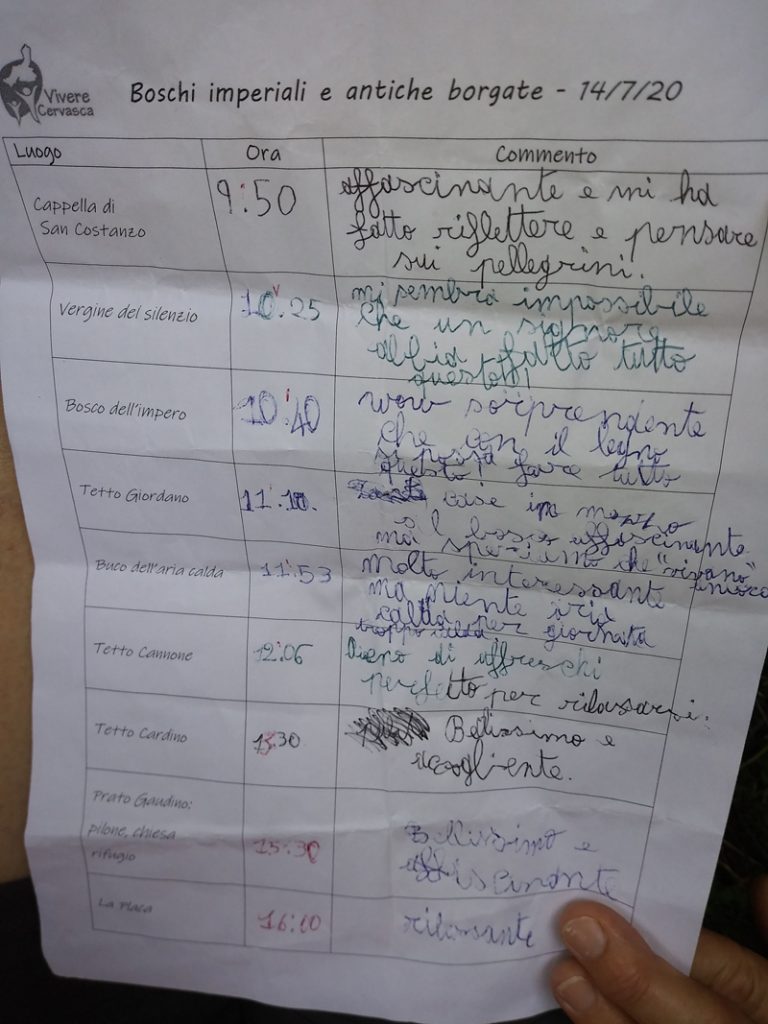 Vivere
Cervasca
Boschi imperiali e antiche borgate - 14/7/20
Luogo Ora Commento
Cappella di
San Costanzo
9:50
affascinante e mi ha
fatto riflettere e pensare
sui pellegrini.
Vergine del silenzio
10:25
mi sembra impossibile
che un signore
abbia fatto tutto
questo!!!
Bosco dell'impero
10:40
wow sorprendente
che con il legno
si possa fare tutto
questo!
Tetto Giordano
11:10.
case in mezzo
al bosco affascinante
ma speriamo che "vivano" ancora
Buco dell'aria calda
11:53
molto interessante
ma niente aria
calda per giornata
troppo calda
Tetto Cannone
12:06
Pieno di affreschi
perfetto per rilassarsi.
Tetto Cardino
13:30
Bellissimo e
accogliente.
Prato Gaudino:
pilone, chiesa
rifugio
15:30
Bellissimo e
affascinante
La Placa
16:10
rilassante